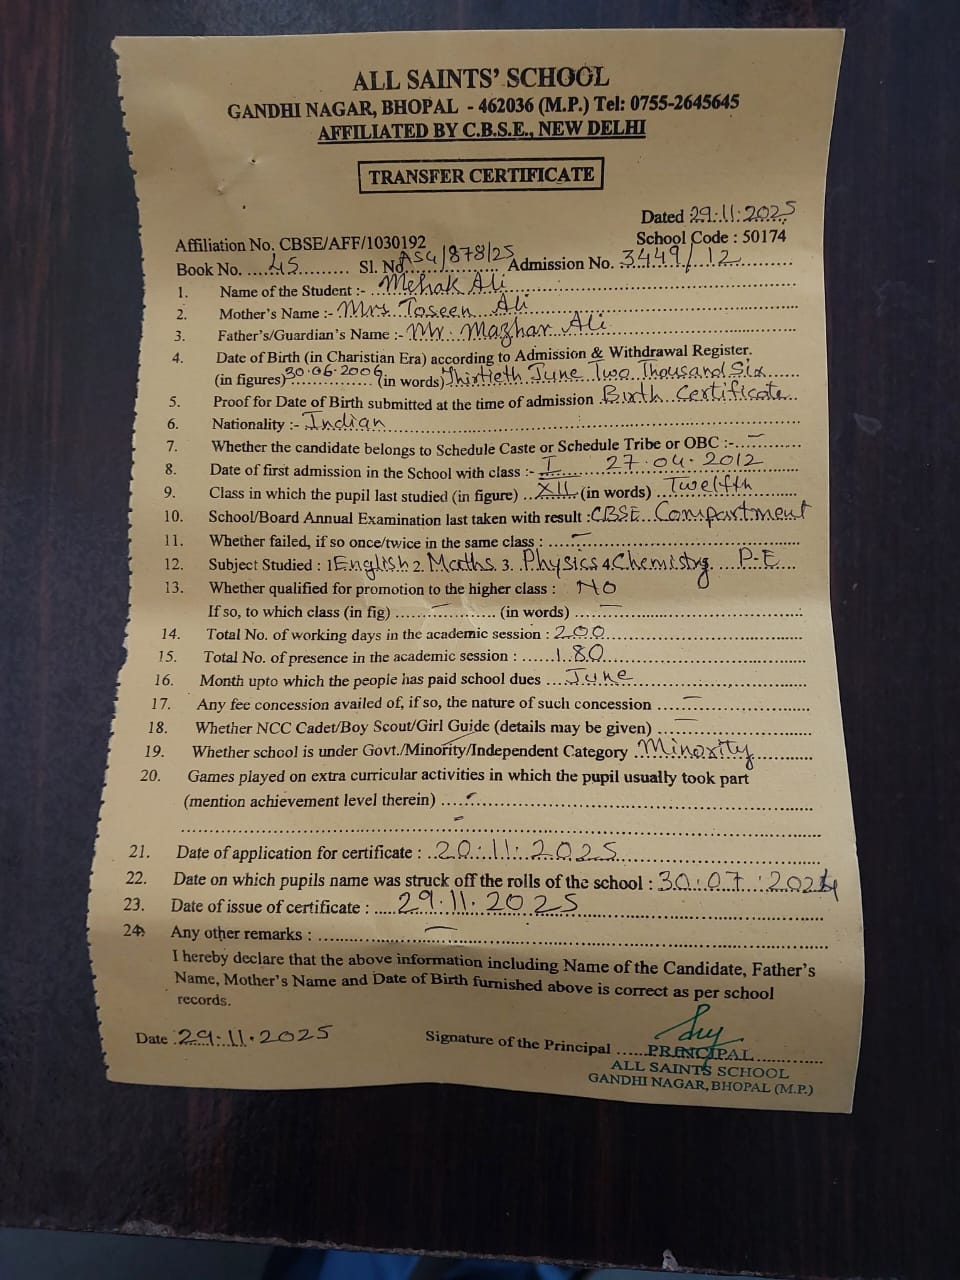 ALL SAINTS' SCHOOL
GANDHI NAGAR, BHOPAL - 462036 (M.P.) Tel: 0755-2645645
AFFILIATED BY C.B.S.E., NEW DELHI
TRANSFER CERTIFICATE
Dated 29.11.2025
Affiliation No. CBSE/AFF/1030192 School Code : 50174
Book No. ....45......... Sl. No. ASG/878/25 Admission No. 3449/12
1. Name of the Student :- Mehak Ali
2. Mother's Name :- Mrs Toseen Ali
3. Father's/Guardian's Name :- Mr. Mazhar Ali
4. Date of Birth (in Charistian Era) according to Admission & Withdrawal Register.
(in figures) 30.06.2006 (in words) Thirtieth June Two Thousand Six
5. Proof for Date of Birth submitted at the time of admission Birth Certificate
6. Nationality :- Indian
7. Whether the candidate belongs to Schedule Caste or Schedule Tribe or OBC :- —
8. Date of first admission in the School with class :- I 27.04.2012
9. Class in which the pupil last studied (in figure) ..XII.. (in words) Twelfth
10. School/Board Annual Examination last taken with result : CBSE Compartment
11. Whether failed, if so once/twice in the same class : —
12. Subject Studied : 1 English 2. Maths 3. Physics 4 Chemistry P.E
13. Whether qualified for promotion to the higher class : NO
If so, to which class (in fig) .....—..... (in words) ...—...
14. Total No. of working days in the academic session : 200
15. Total No. of presence in the academic session : 180
16. Month upto which the people has paid school dues ... June
17. Any fee concession availed of, if so, the nature of such concession —
18. Whether NCC Cadet/Boy Scout/Girl Guide (details may be given) —
19. Whether school is under Govt./Minority/Independent Category Minority
20. Games played on extra curricular activities in which the pupil usually took part
(mention achievement level therein) ....—
21. Date of application for certificate : 20.11.2025
22. Date on which pupils name was struck off the rolls of the school : 30.07.2024
23. Date of issue of certificate : 29.11.2025
24. Any other remarks : —
I hereby declare that the above information including Name of the Candidate, Father's
Name, Mother's Name and Date of Birth furnished above is correct as per school
records.
Date : 29.11.2025 Signature of the Principal ......PRINCIPAL
ALL SAINTS SCHOOL
GANDHI NAGAR, BHOPAL (M.P.)